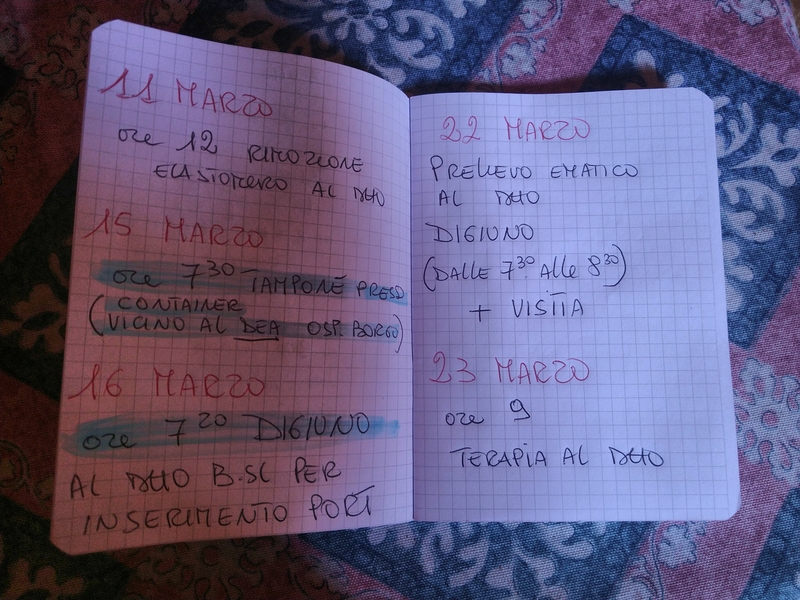 11 MARZO
ore 12 RIMOZIONE
ELASTOMERO AL DHO
15 MARZO
ore 7³⁰ - TAMPONE PRESSO
(CONTAINER
VICINO AL DEA OSP. BORGO)
16 MARZO
ore 7²⁰ DIGIUNO
AL DHO B.SL PER
INSERIMENTO PORT
22 MARZO
PRELIEVO EMATICO
AL DHO
DIGIUNO
(DALLE 7³⁰ ALLE 8³⁰)
+ VISITA
23 MARZO
ore 9
TERAPIA AL DHO